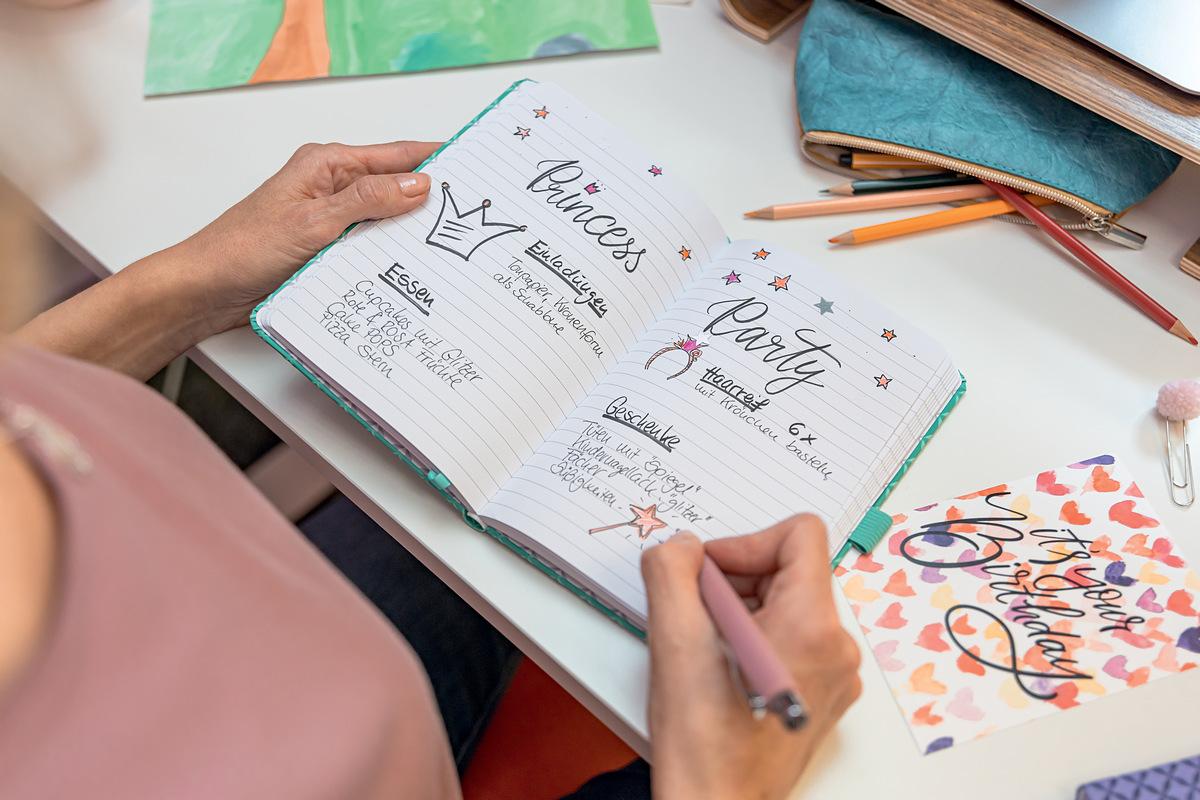 Princess
Einladungen
Tonpapier, Kronenform
als Schablone
Essen
Cupcakes mit Glitzer
Rote & ROSA Früchte
Cake POPS
Pizza Stern
Party
Haarreif 6x
mit Krönchen basteln
Geschenke
Tüten mit "Spiegel"
Kindernagellack "glitzer"
Fächer
Süßigkeiten
it's your
Birthday